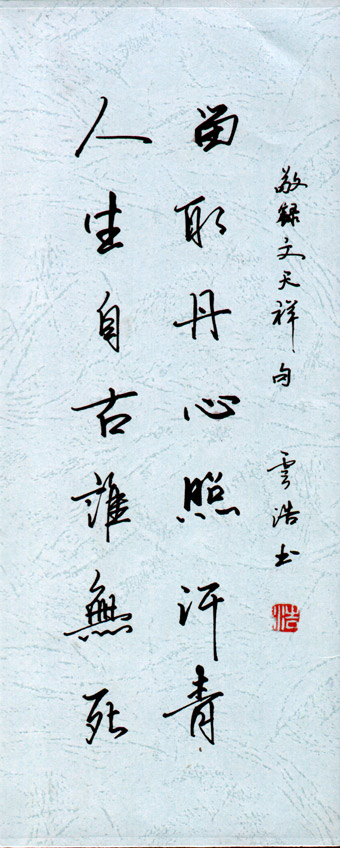 人生自古誰無死
留取丹心照汗青
敬錄文天祥句 雲浩书
浩